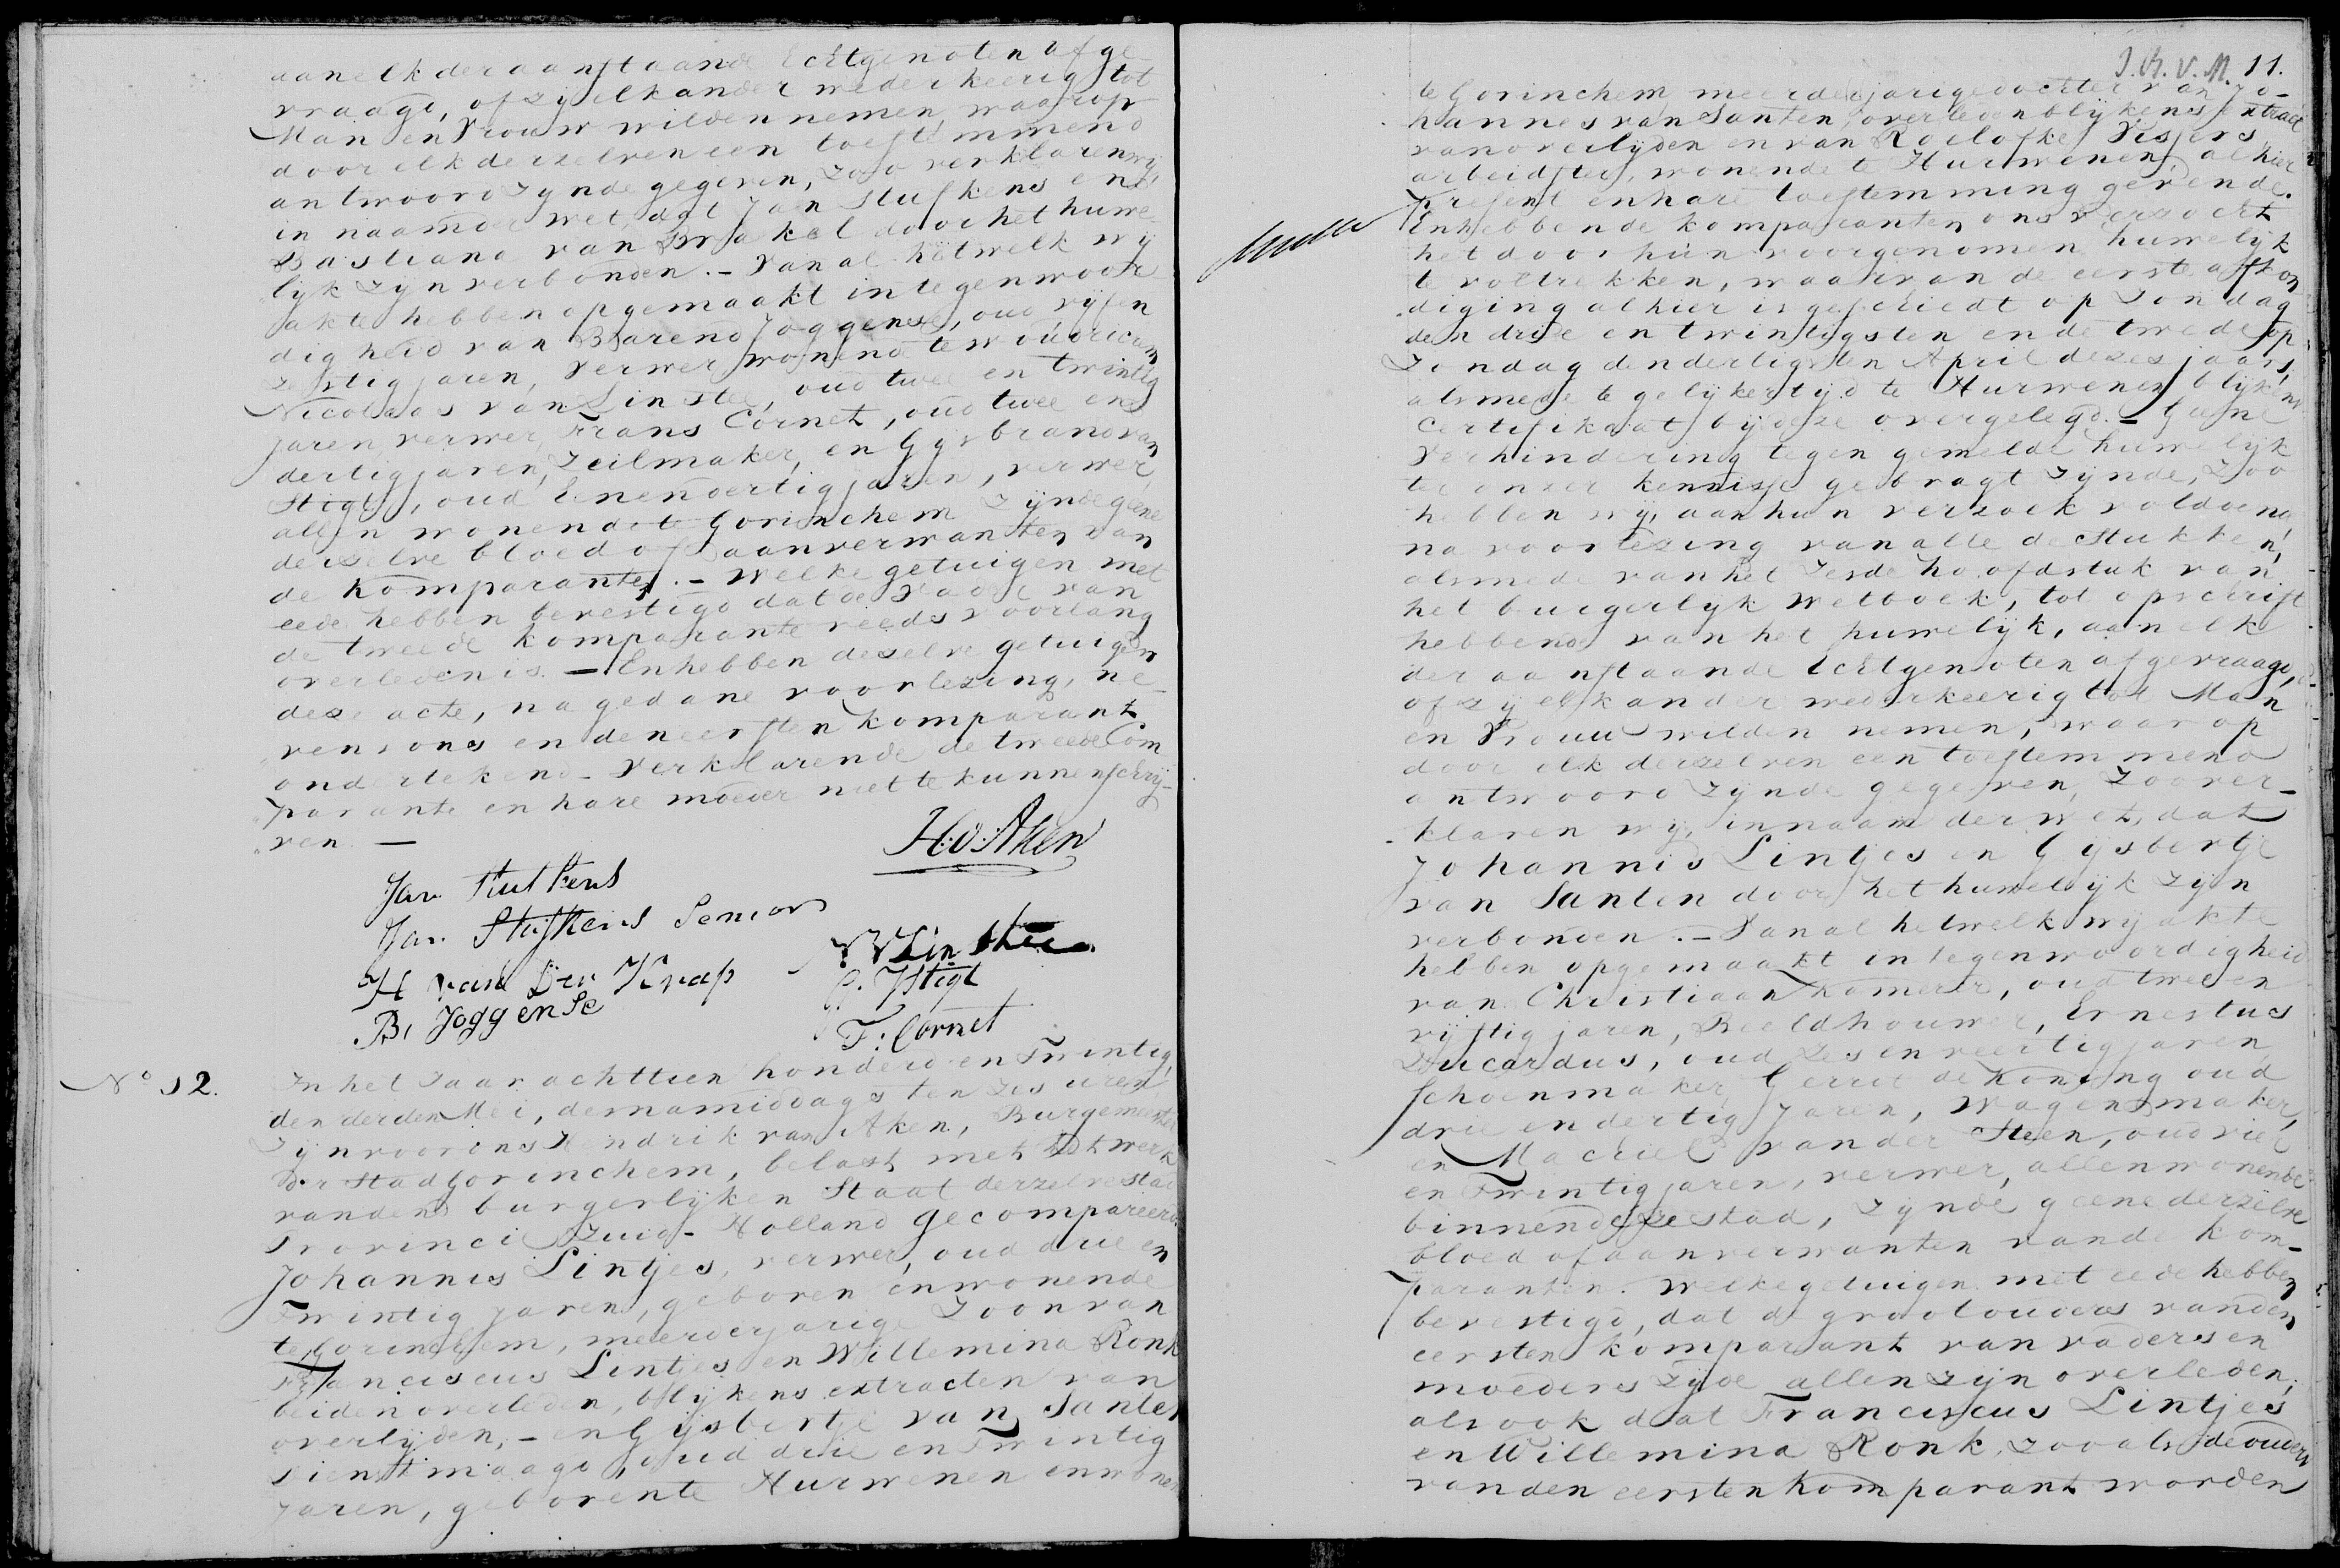 aan elk der aanstaande Echtgenoten afge
vraagd, of zy elkander wederkeerig tot
Man en Vrouw wilden nemen, waarop
door elk derzelven een toestemmend
antwoord zynde gegeven, zoo verklaren wy,
in naam der wet, dat Jan Stufkens en
Bastiana van Brakel door het huwe
lyk zyn verbonden. - Van al hetwelk wy
akte hebben opgemaakt in tegenwoor
digheid van Barend Joggense, oud vyf en
zestig jaren, verwer wonend te Woudrichem
Nicolaas van Linstee, oud twee en twintig
jaren verwer, Frans Cornet, oud twee en
dertig jaren, Zeilmaker, en Gysbrand van
Stigt, oud Een en veertig jaren, verwer,
allen wonende te Gorinchem zynde geene
derzelve bloed of aanverwanten van
de komparanten. - Welke getuigen met
eede hebben bevestigd dat de Vader van
de tweede komparante reeds voorlang
overleden is. - En hebben dezelve getuigen
deze acte, na gedane voorlezing, ne
vens ons en den eersten komparant
ondertekend - Verklarende de tweede Com
parante en hare moeder niet te kunnen schry-
ven. -
H. v. Aken
Jan Stufkens
Jan Stufkens Senior
N V Linstee
H van Der Krap
G. V Stigt
B. Joggense
F. Cornet
No 12.
In het Jaar achttien honderd en Twintig,
den derden Mei, des namiddags ten zes uren
Zyn voor ons Hendrik van Aken, Burgemeester
der Stad Gorinchem, belast met het werk
van den burgerlyken Staat derzelve stad
Provincie Zuid-Holland gecompareerd
Johannis Lintjes, verwer, oud drie en
Twintig jaren, geboren en wonende
te Gorinchem, meerderjarige Zoon van
Franciscus Lintjes en Willemina Ronk
beiden overleden, blykens extracten van
overlyden, - en Gysbertje van Santen
dienstmaagd, oud drie en Twintig
jaren, geboren te Hurwenen en wonende
J. A. V. M. 11.
te Gorinchem, meerderjarige dochter van Jo-
hannes van Santen, overleden blykens extract
van overlyden en van Roelofke Vissers
arbeidster, wonende te Hurwenen, alhier
present en hare toestemming gevende.
En hebbende komparanten ons verzocht
het door hun voorgenomen huwelyk
te voltrekken, waarvan de eerste afkon
diging alhier is geschiedt op Zondag
den drie en twintigsten en de tweede op
Zondag den dertigsten April dezes jaars,
alsmede te gelykertyd te Hurwenen blykens
Certifikaat by deze overgelegd. - Geene
verhindering tegen gemelde huwelyk
ter onzer kennisse gebragt zynde, Zoo
hebben wy, aan hun verzoek voldoende
na voorlezing van alle de stukken,
alsmede van het Zesde hoofdstuk van
het burgerlyk wetboek, tot opschrift
hebbende van het huwelyk, aan elk
der aanstaande Echtgenoten afgevraagd,
of zy elkander wederkeerig tot Man
en Vrouw wilden nemen, waarop
door elk derzelven een toestemmend
antwoord zynde gegeven, Zoo ver-
klaren wy, in naam der wet, dat
Johannis Lintjes en Gysbertje
van Santen door het huwelyk zyn
verbonden. - Van al hetwelk wy akte
hebben opgemaakt in tegenwoordigheid
van Christiaan Komerer, oud twee en
vyftig jaren, Beeldhouwer, Ernestus
Ducardus, oud zes en veertig jaren
schoenmaker, Gerrit de Koning oud
drie en dertig jaren, Wagenmaker,
en Machiel van der Steen, oud vier
en Twintig jaren, verwer, allen wonende
binnen deze stad, zynde geene derzelve
bloed of aanverwanten van de kom-
paranten. Welke getuigen met eede hebben
bevestigd, dat de grootouders van den
eersten komparant van vaders en
moeders zyde allen zyn overleden,
als ook dat Franciscus Lintjes
en Willemina Ronk, zoo als de ouders
van den eersten komparant worden